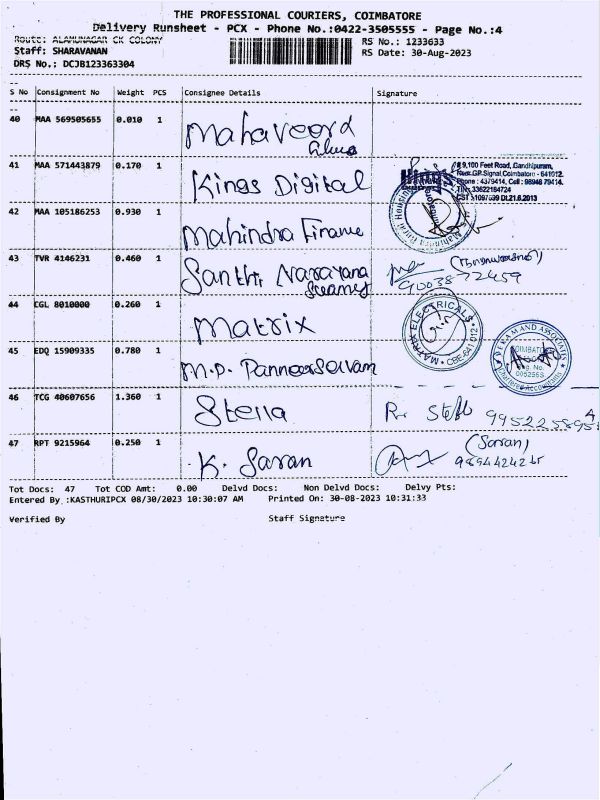 THE PROFESSIONAL COURIERS, COIMBATORE
Delivery Runsheet - PCX - Phone No.:0422-3505555 - Page No.:4
Route: ALAMUNAGAR CK COLONY
RS No.: 1233633
Staff: SHARAVANAN
RS Date: 30-Aug-2023
DRS No.: DCJB123363304
S No Consignment No Weight PCS Consignee Details Signature
40 MAA 569505655 0.010 1 Mahaveerd
41 MAA 571443879 0.170 1 Kings Digital
# 9,100 Feet Road, Gandhipuram,
Near.GP.Signal,Coimbatore - 641012.
Phone : 4379414, Cell : 98948 79414.
TIN:33622164724
42 MAA 105186253 0.930 1 Mahindra Finance
43 TVR 4146231 0.460 1 Santhi Narayana
9003872459
44 CGL 8010000 0.260 1 Matrix
MATRIX ELECTRICALS
CBE-641 012
45 EDQ 15909335 0.780 1 M.P. Panneerselvam
COIMBATORE
Chartered Accountants
46 TCG 40607656 1.360 1 Stella
47 RPT 9215964 0.250 1 K. Saran (Saran)
Tot Docs: 47 Tot COD Amt: 0.00 Delvd Docs: Non Delvd Docs: Delvy Pts:
Entered By :KASTHURIPCX 08/30/2023 10:30:07 AM Printed On: 30-08-2023 10:31:33
Verified By Staff Signature